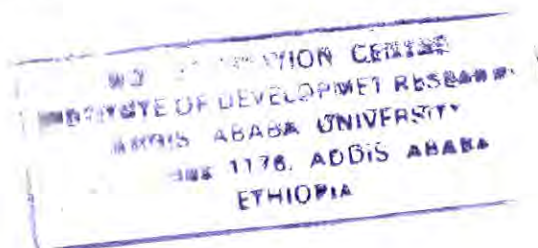 CENTRE
OF DEVELOPMET RESEARCH
ADDIS ABABA UNIVERSITY
1176, ADDIS ABABA
ETHIOPIA